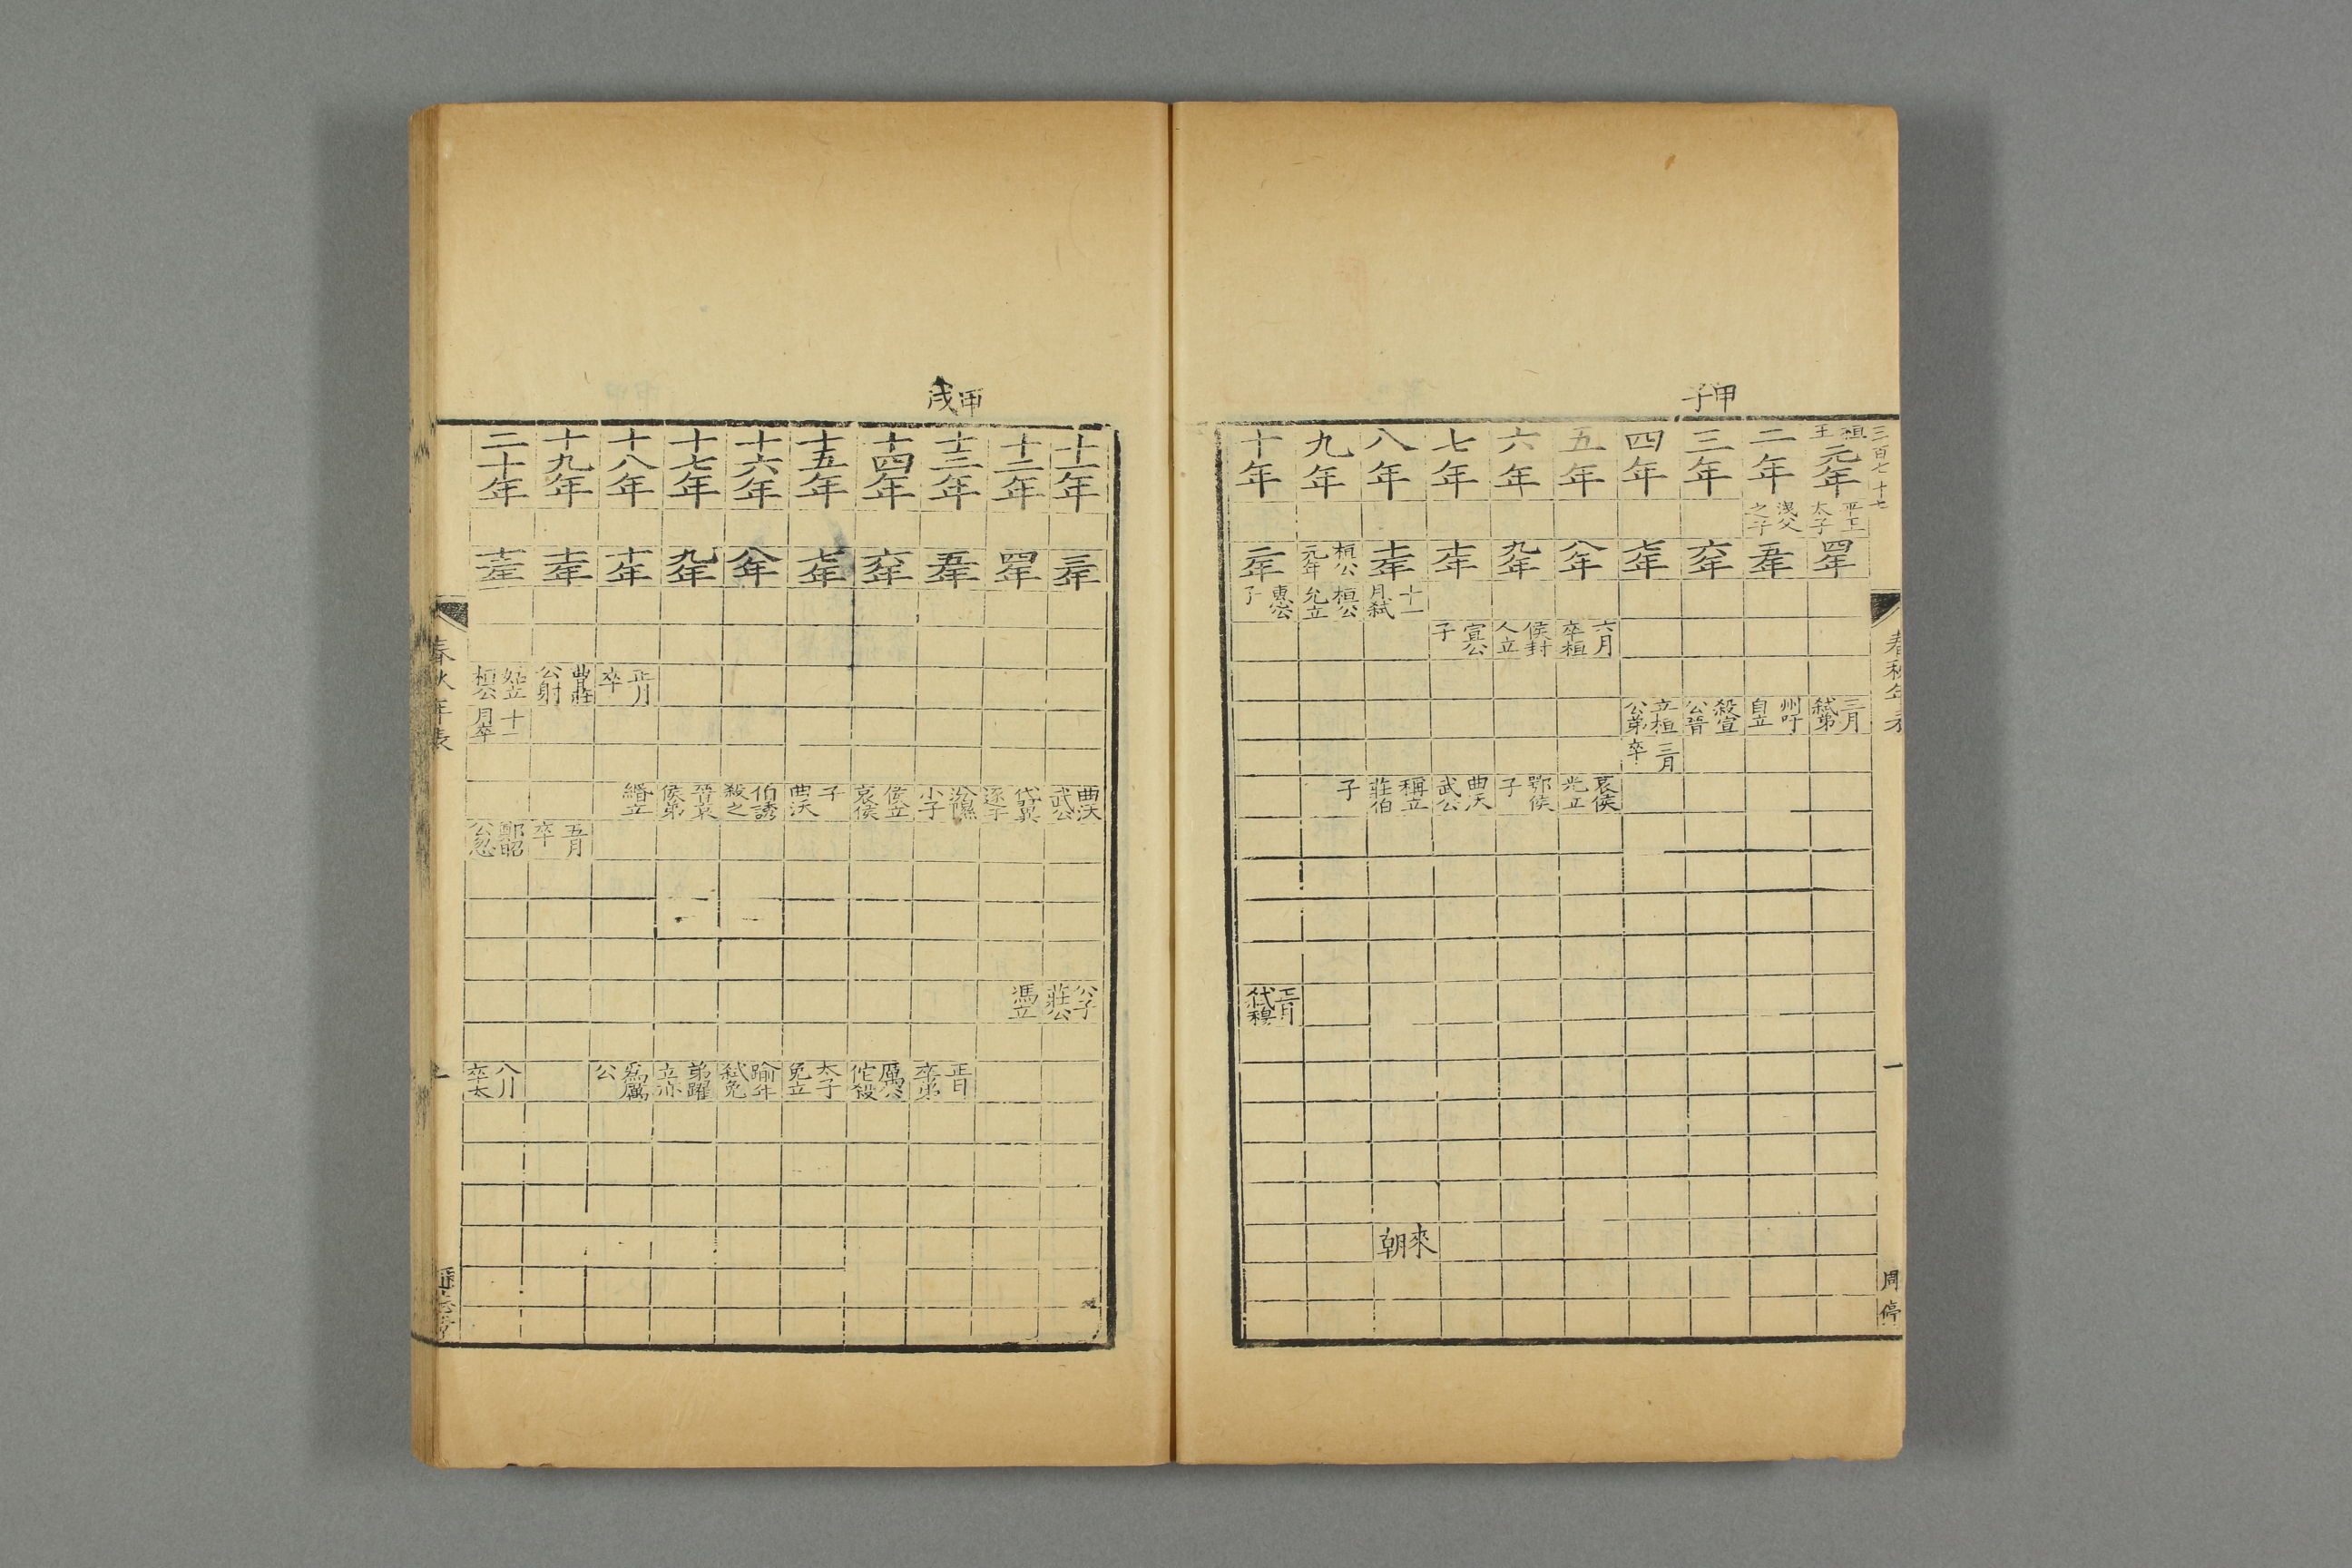 甲子
三百七十七
春秋年表
一
周停
桓王元年 二年 三年 四年 五年 六年 七年 八年 九年 十年
平王太子 洩父之子
四年 五年 六年 七年 八年 九年 十年 十一年 桓公元年 二年
十一月弒 桓公允立 惠公子
六月卒桓 侯封人立 宣公子
三月弒弟 州吁自立 殺宣公晉 立桓公弟
三月卒
哀侯光立 鄂侯子 曲沃武公 稱立莊伯 子
正月弒穆
來朝
甲戌
十一年 十二年 十三年 十四年 十五年 十六年 十七年 十八年 十九年 二十年
三年 四年 五年 六年 七年 八年 九年 十年 十一年 十二年
正月卒 曹莊公射 姑立桓公
十一月卒
曲沃武公 代翼逐子 汾隰小子 侯立哀侯 子曲沃 伯誘殺之 晉哀侯弟 緡立
五月卒 鄭昭公忽
公子莊公 馮立
正月卒弟 厲公佗殺 太子免立 踰年弒免 弟躍立亦 爲厲公
八月卒太
春秋年表